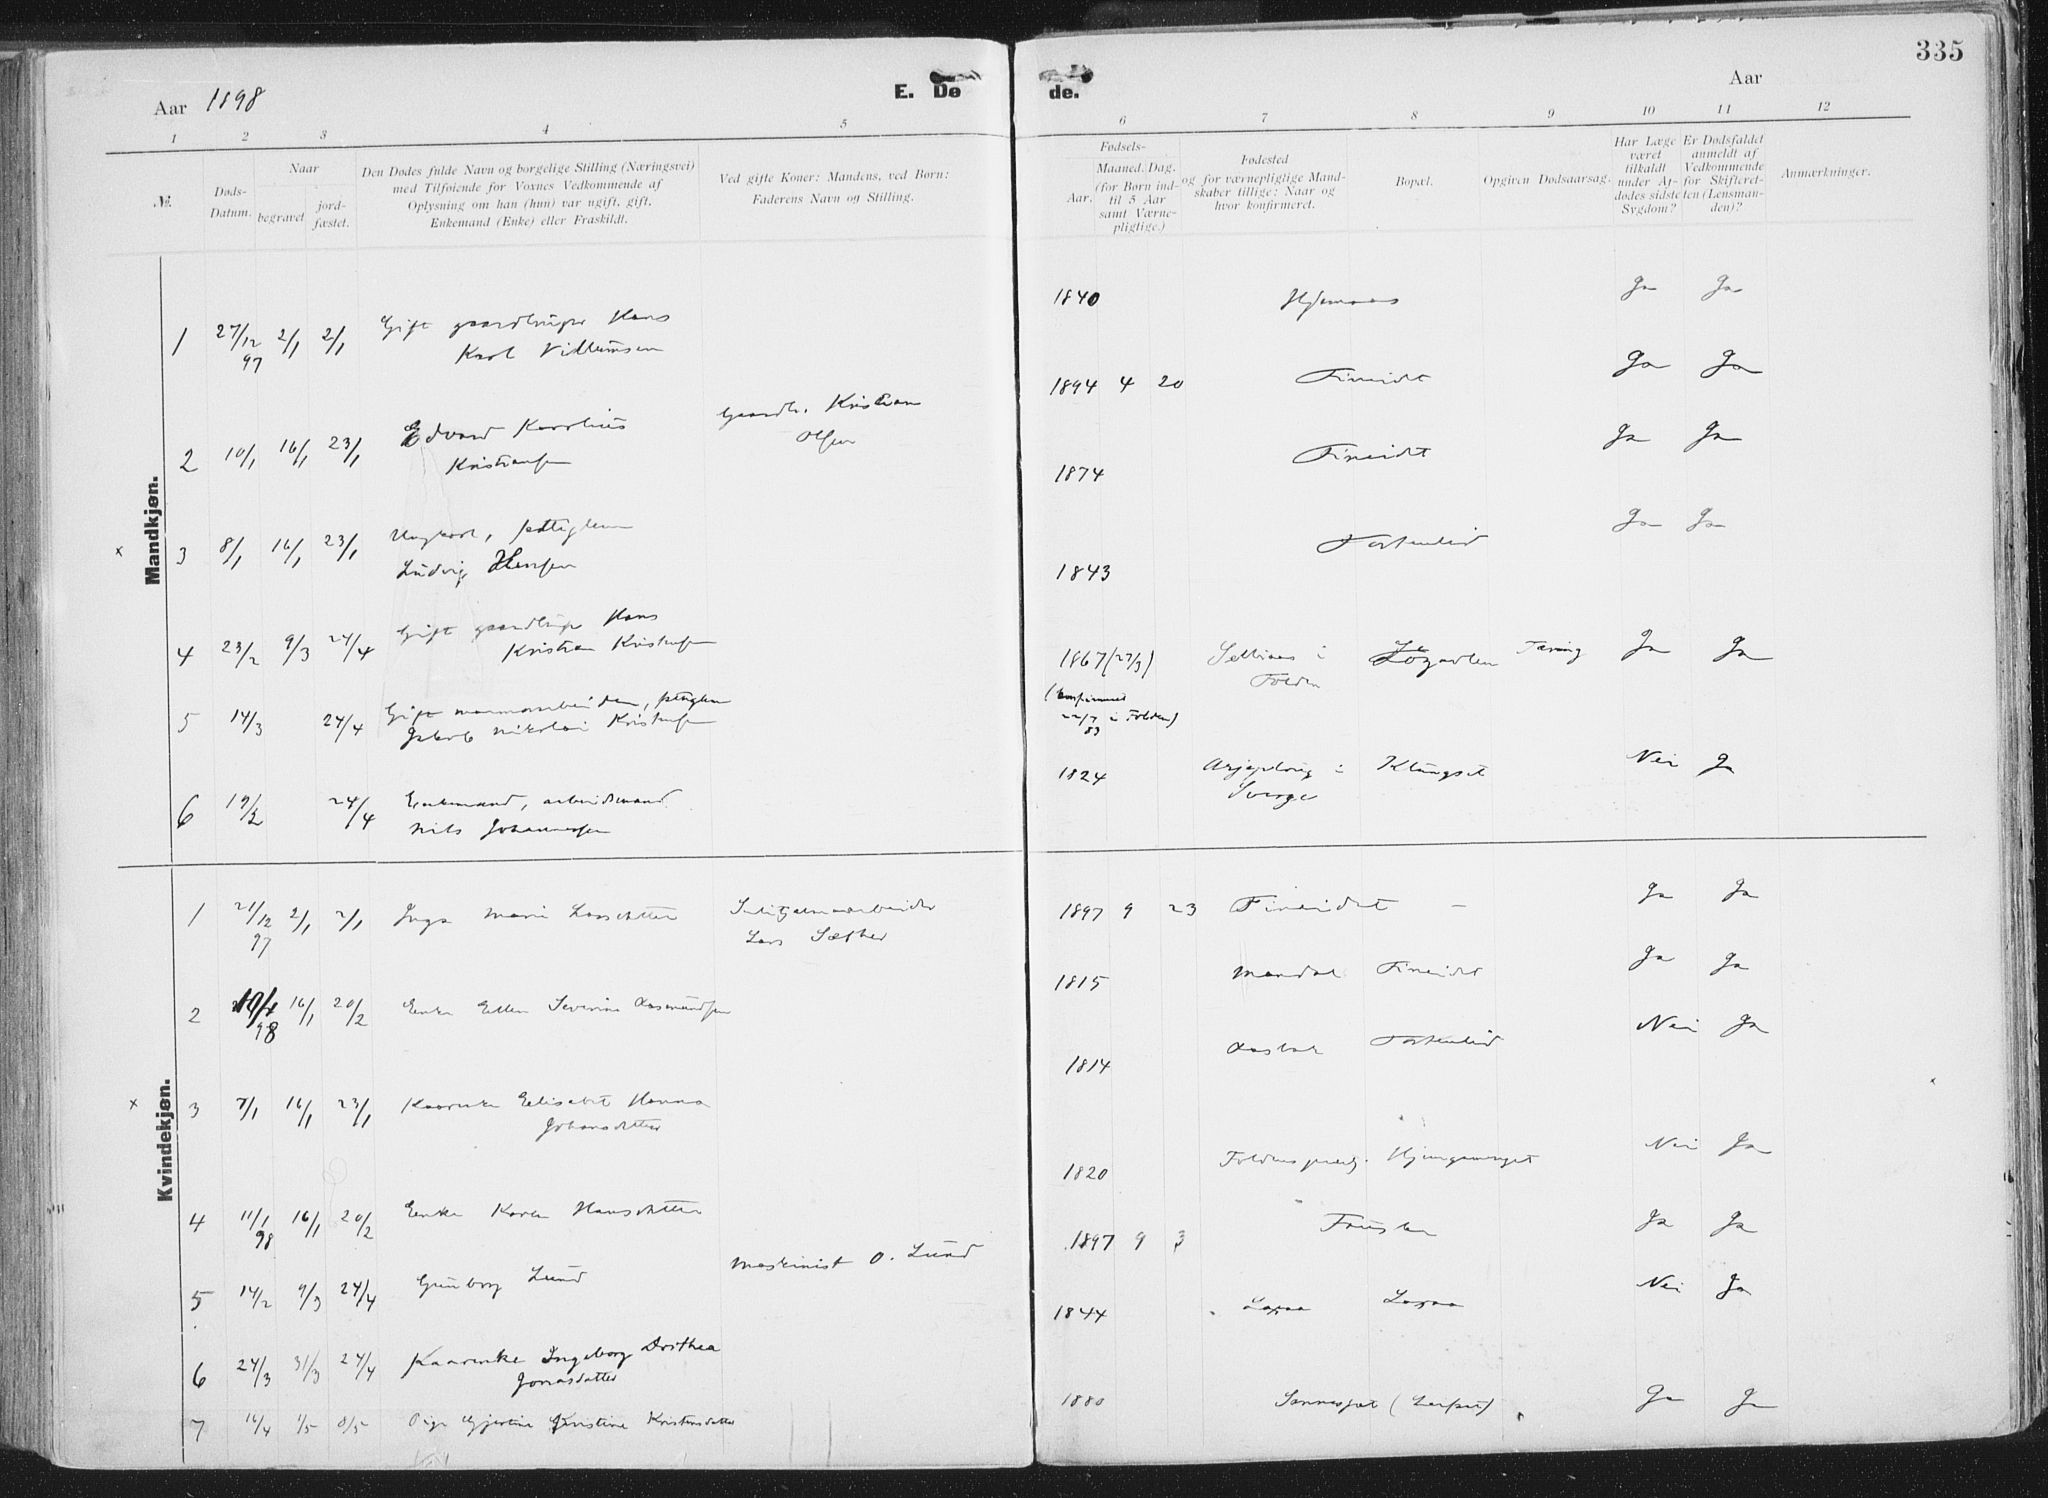 335
Aar 1898
E. Dø
de.
Aar
1 2 3 4 5
6 7 8 9 10 11 12
No.
Døds-
Datum.
Naar
begravet
jord-
fæstet.
Den Dødes fulde Navn og borgelige Stilling (Næringsvei)
med Tilføiende for Voxnes Vedkommende af
Oplysning om han (hun) var ugift, gift,
Enkemand (Enke) eller Fraskildt.
Ved gifte Koner: Mandens, ved Børn:
Faderens Navn og Stilling.
Fødsels-
Aar.
Maaned. Dag.
(for Børn ind-
til 5 Aar
samt Værne-
pligtige.)
Fødested
og for værnepligtige Mand-
skaber tillige: Naar og
hvor konfirmeret.
Bopæl.
Opgiven Dødsaarsag.
Har Læge
været
tilkaldt
under Af-
dødes sidste
Sygdom?
Er Dødsfaldet
anmeldt af
Vedkommende
for Skifteret-
ten (Lensman-
den)?
Anmærkninger.
Mandkjøn.
1 27/12 97 2/1 2/1 Gift gaardbruger Hans
Karl Villumsen
1840 Ja Ja
2 10/1 16/1 23/1 Edvard Karolius
Kristiansen
Gaardb. Kristian
Olsen
1894 4 20 Fineidet Ja Ja
x 3 8/1 16/1 23/1 Ungkarl,
Ludvig Hensen
1874 Fineidet Ja Ja
4 23/2 9/3 24/4 Gift gaardbruger Hans
Kristian Kristensen
1843 Ja Ja
5 14/3 24/4 Gift
Jakob Nikolai Kristensen
1867 (27/3)
(konfirmeret
22/7 83 i Folden)
i
Folden
Tæring Ja Ja
6 19/2 24/4 Enkemand, arbeidsmand
Nils Johannessen
1824 Arjeploug i
Sverge
Klungset Nei Ja
Kvindekjøn.
1 21/12 97 2/1 2/1 Inga Marie Larsdatter
Sulitjelmaarbeider
Lars Sæther
1897 9 23 Fineidet - Ja Ja
2 10/1 98 16/1 20/2 Enke Ellen Severine Aasmundsen
1815 Fineidet Ja Ja
x 3 7/1 16/1 23/1 Kaarenke Elisabet Hanna
Johansdatter
1814 Nei Ja
4 11/1 98 16/1 20/2 Enke Karen Hansdatter
1820 Nei Ja
5 14/2 9/3 24/4 Gunborg Lund
Maskinist O. Lund
1897 9 3 Fauske Ja Ja
6 24/3 31/3 24/4 Kaarenke Ingeborg Dorthea
Jonasdatter
1844 Laxaa Laxaa Nei Ja
7 16/4 1/5 8/5 Pige Gjertine Kristine Kristensdatter
1880 Ja Ja